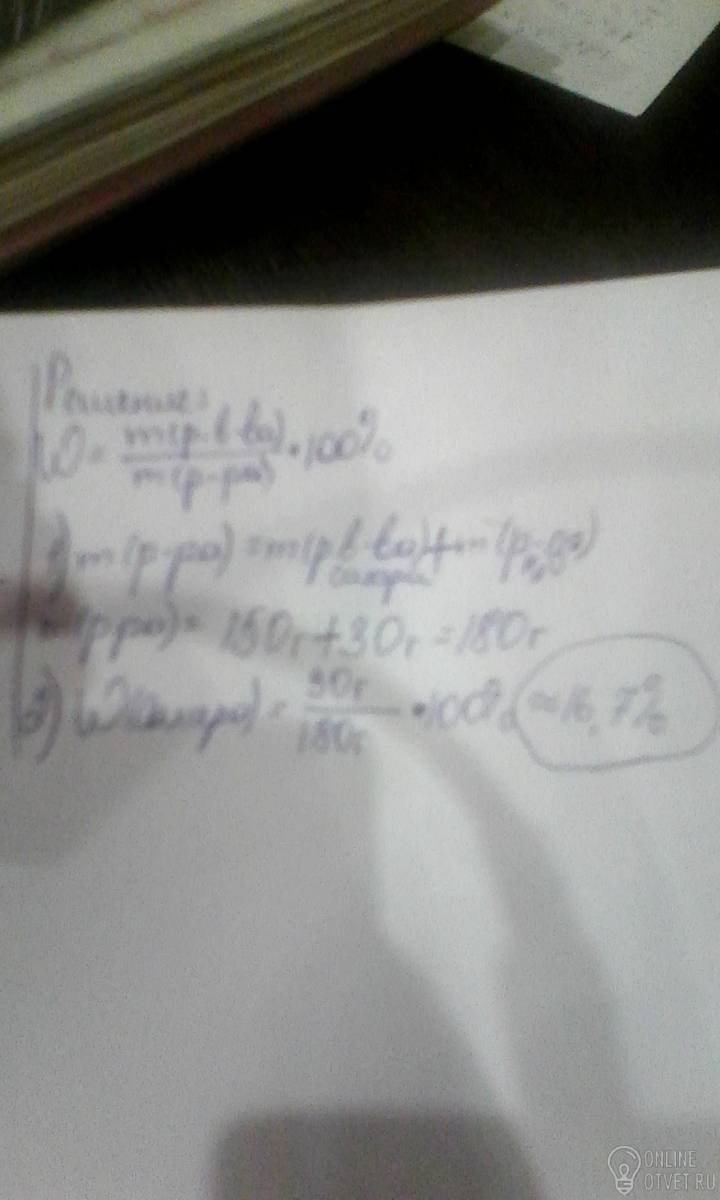 Решение:
W = m(р.в-ва) / m(р-ра) • 100%
1) m(р-ра) = m(р.в-ва) + m(
сахара
m(р-ра) = 150г + 30г = 180г
2) W(сахара) = 30г / 180г • 100% ≈ 16,7%
ONLINE
OTVET.RU